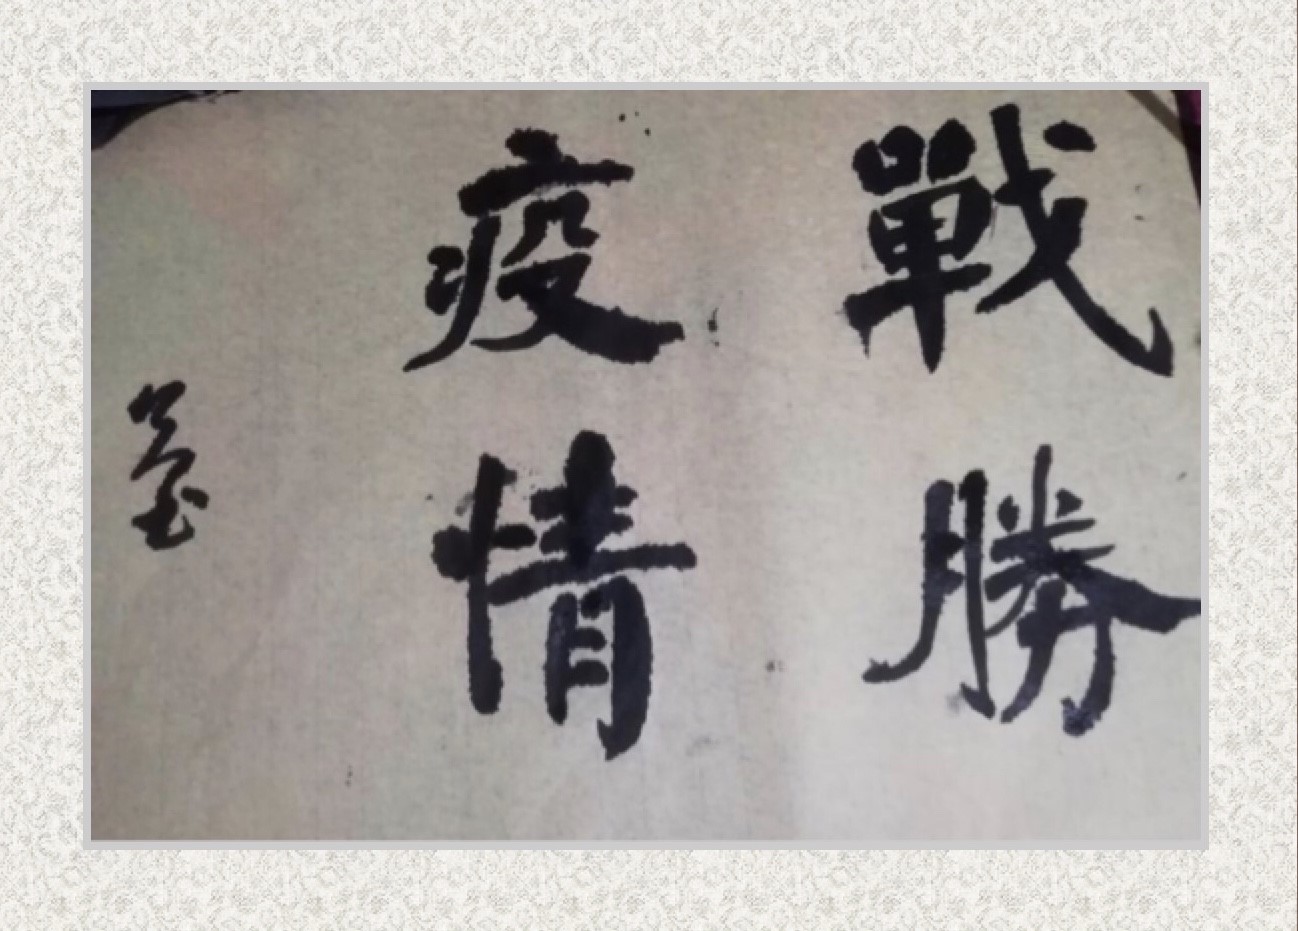 戰勝
疫情